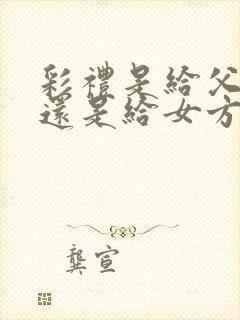 彩禮是給父
還是給女方
龔宣